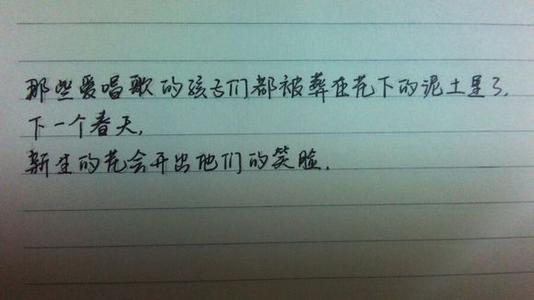 那些爱唱歌的孩子们都被葬在花下的泥土里了.
下一个春天,
新生的花会开出他们的笑脸.